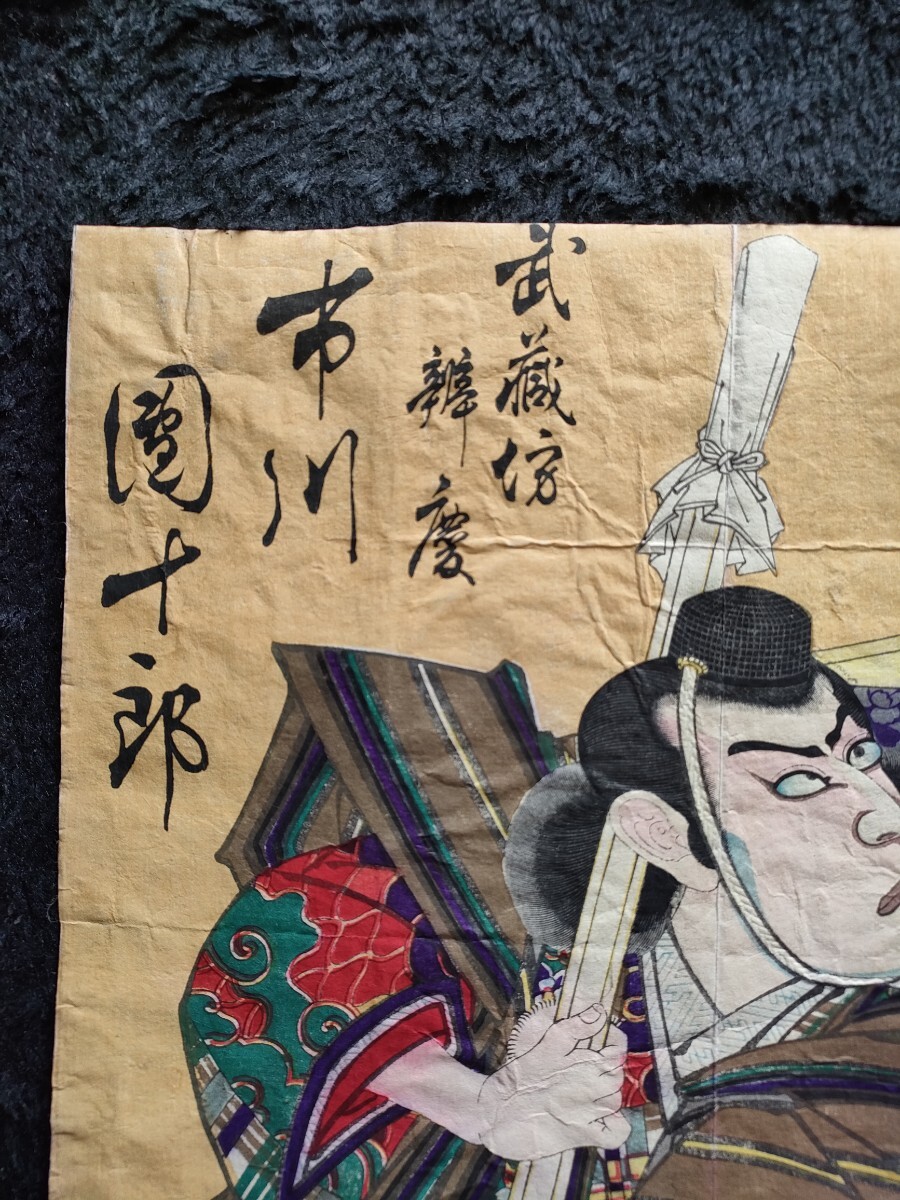 武藏坊
辨慶
市川
團十郎